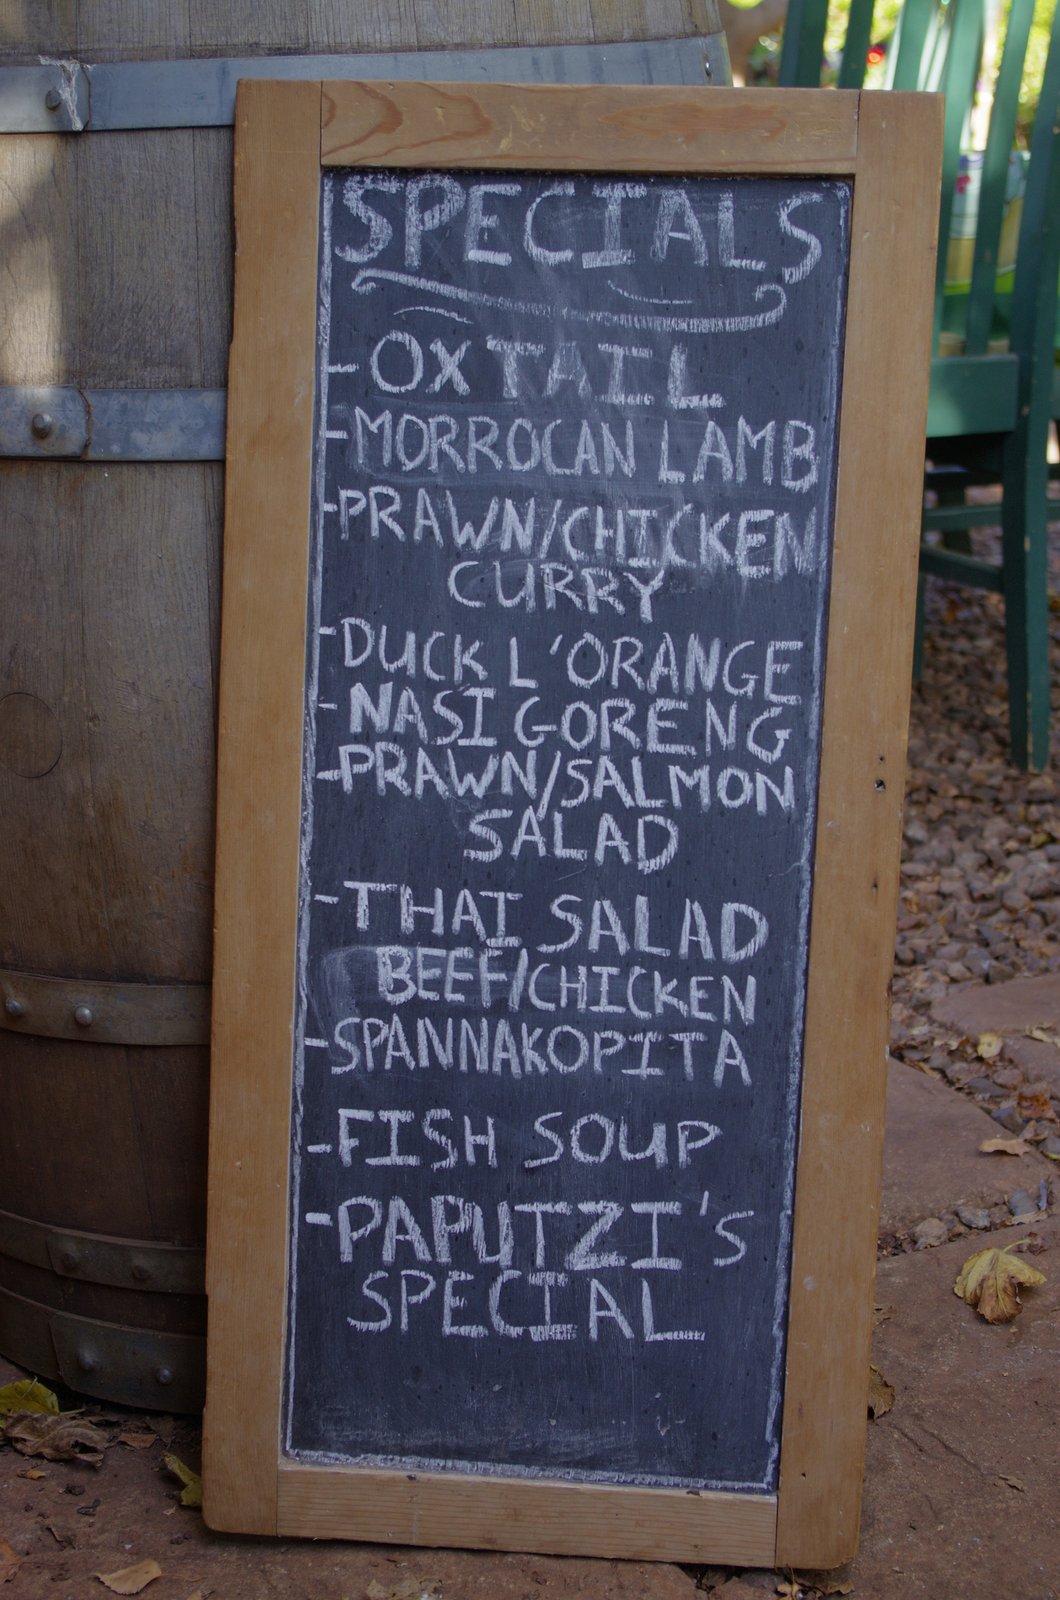 SPECIALS
- OXTAIL
- MORROCAN LAMB
- PRAWN/CHICKEN
CURRY
- DUCK L'ORANGE
- NASI GORENG
- PRAWN/SALMON
SALAD
- THAI SALAD
BEEF/CHICKEN
- SPANNAKOPITA
- FISH SOUP
- PAPUTZI'S
SPECIAL